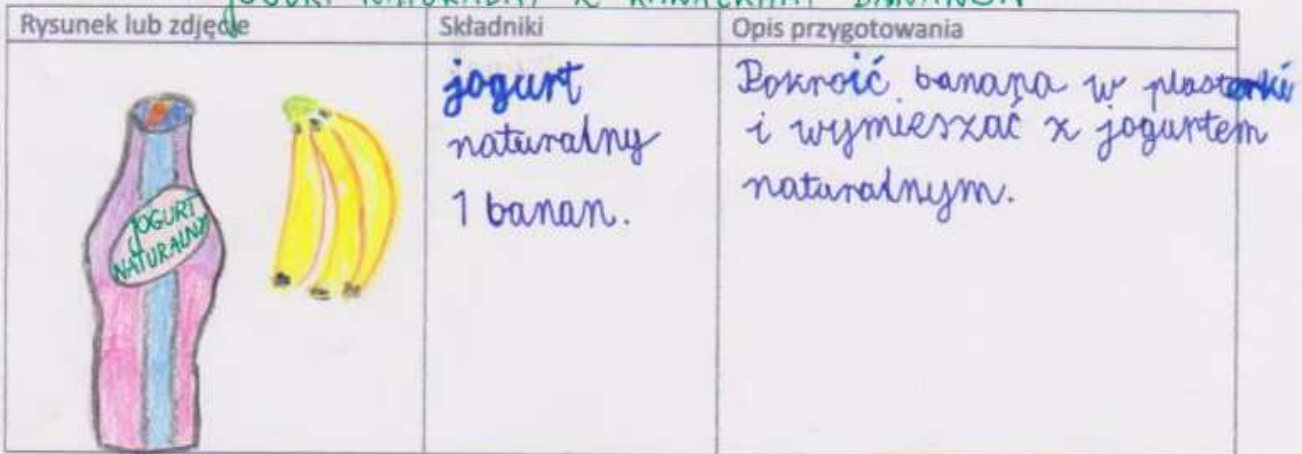 JOGURT NATURALNY Z KAWAŁKAMI BANANÓW
Rysunek lub zdjęcie
Składniki
Opis przygotowania
JOGURT
NATURALNY
jogurt
naturalny
1 banan.
Pokroić banana w plasterki
i wymieszać z jogurtem
naturalnym.